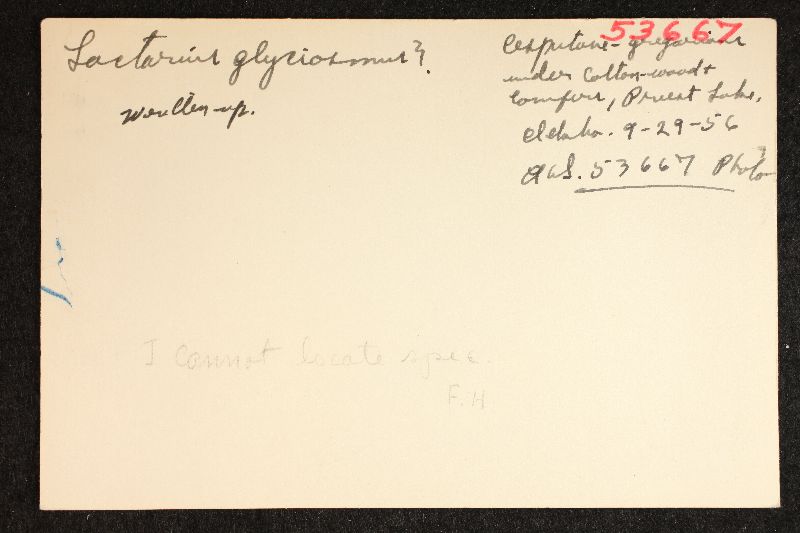 53667
Lactarius glyciosmus?
Written-up.
Cespitose-gregarious
under Cotton-wood +
Conifers, Priest Lake,
Idaho. 9-29-56
AHS. 53667 Photo
I cannot locate spec.
F.H